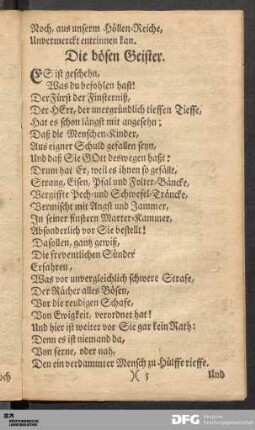 Noch, aus unserm Höllen-Reiche,
Unvermerckt entrinnen kan.
Die bösen Geister.
ES ist geschehn,
Was du befohlen hast!
Der Fürst der Finsterniß,
Der HErr, der unergründlich tieffen Tieffe,
Hat es schon längst mit angesehn;
Daß die Menschen-Kinder,
Aus eigner Schuld gefallen seyn,
Und daß Sie GOtt deswegen haßt:
Drum hat Er, weil es ihnen so gefällt,
Strang, Eisen, Pfal und Folter-Bäncke,
Vergiffte Pech-und Schwefel-Träncke,
Vermischt mit Angst und Jammer,
In seiner finstern Marter-Kammer,
Absonderlich vor Sie bestellt!
Da sollen, gantz gewiß,
Die freventlichen Sünder
Erfahren,
Was vor unvergleichlich schwere Strafe,
Der Rächer alles Bösen,
Vor die reudigen Schafe,
Von Ewigkeit, verordnet hat!
Und hier ist weiter vor Sie gar kein Rath:
Denn es ist niemand da,
Von ferne, oder nah,
Den ein verdammter Mensch zu Hülffe rieffe.
)( 5 Und
och
DFG